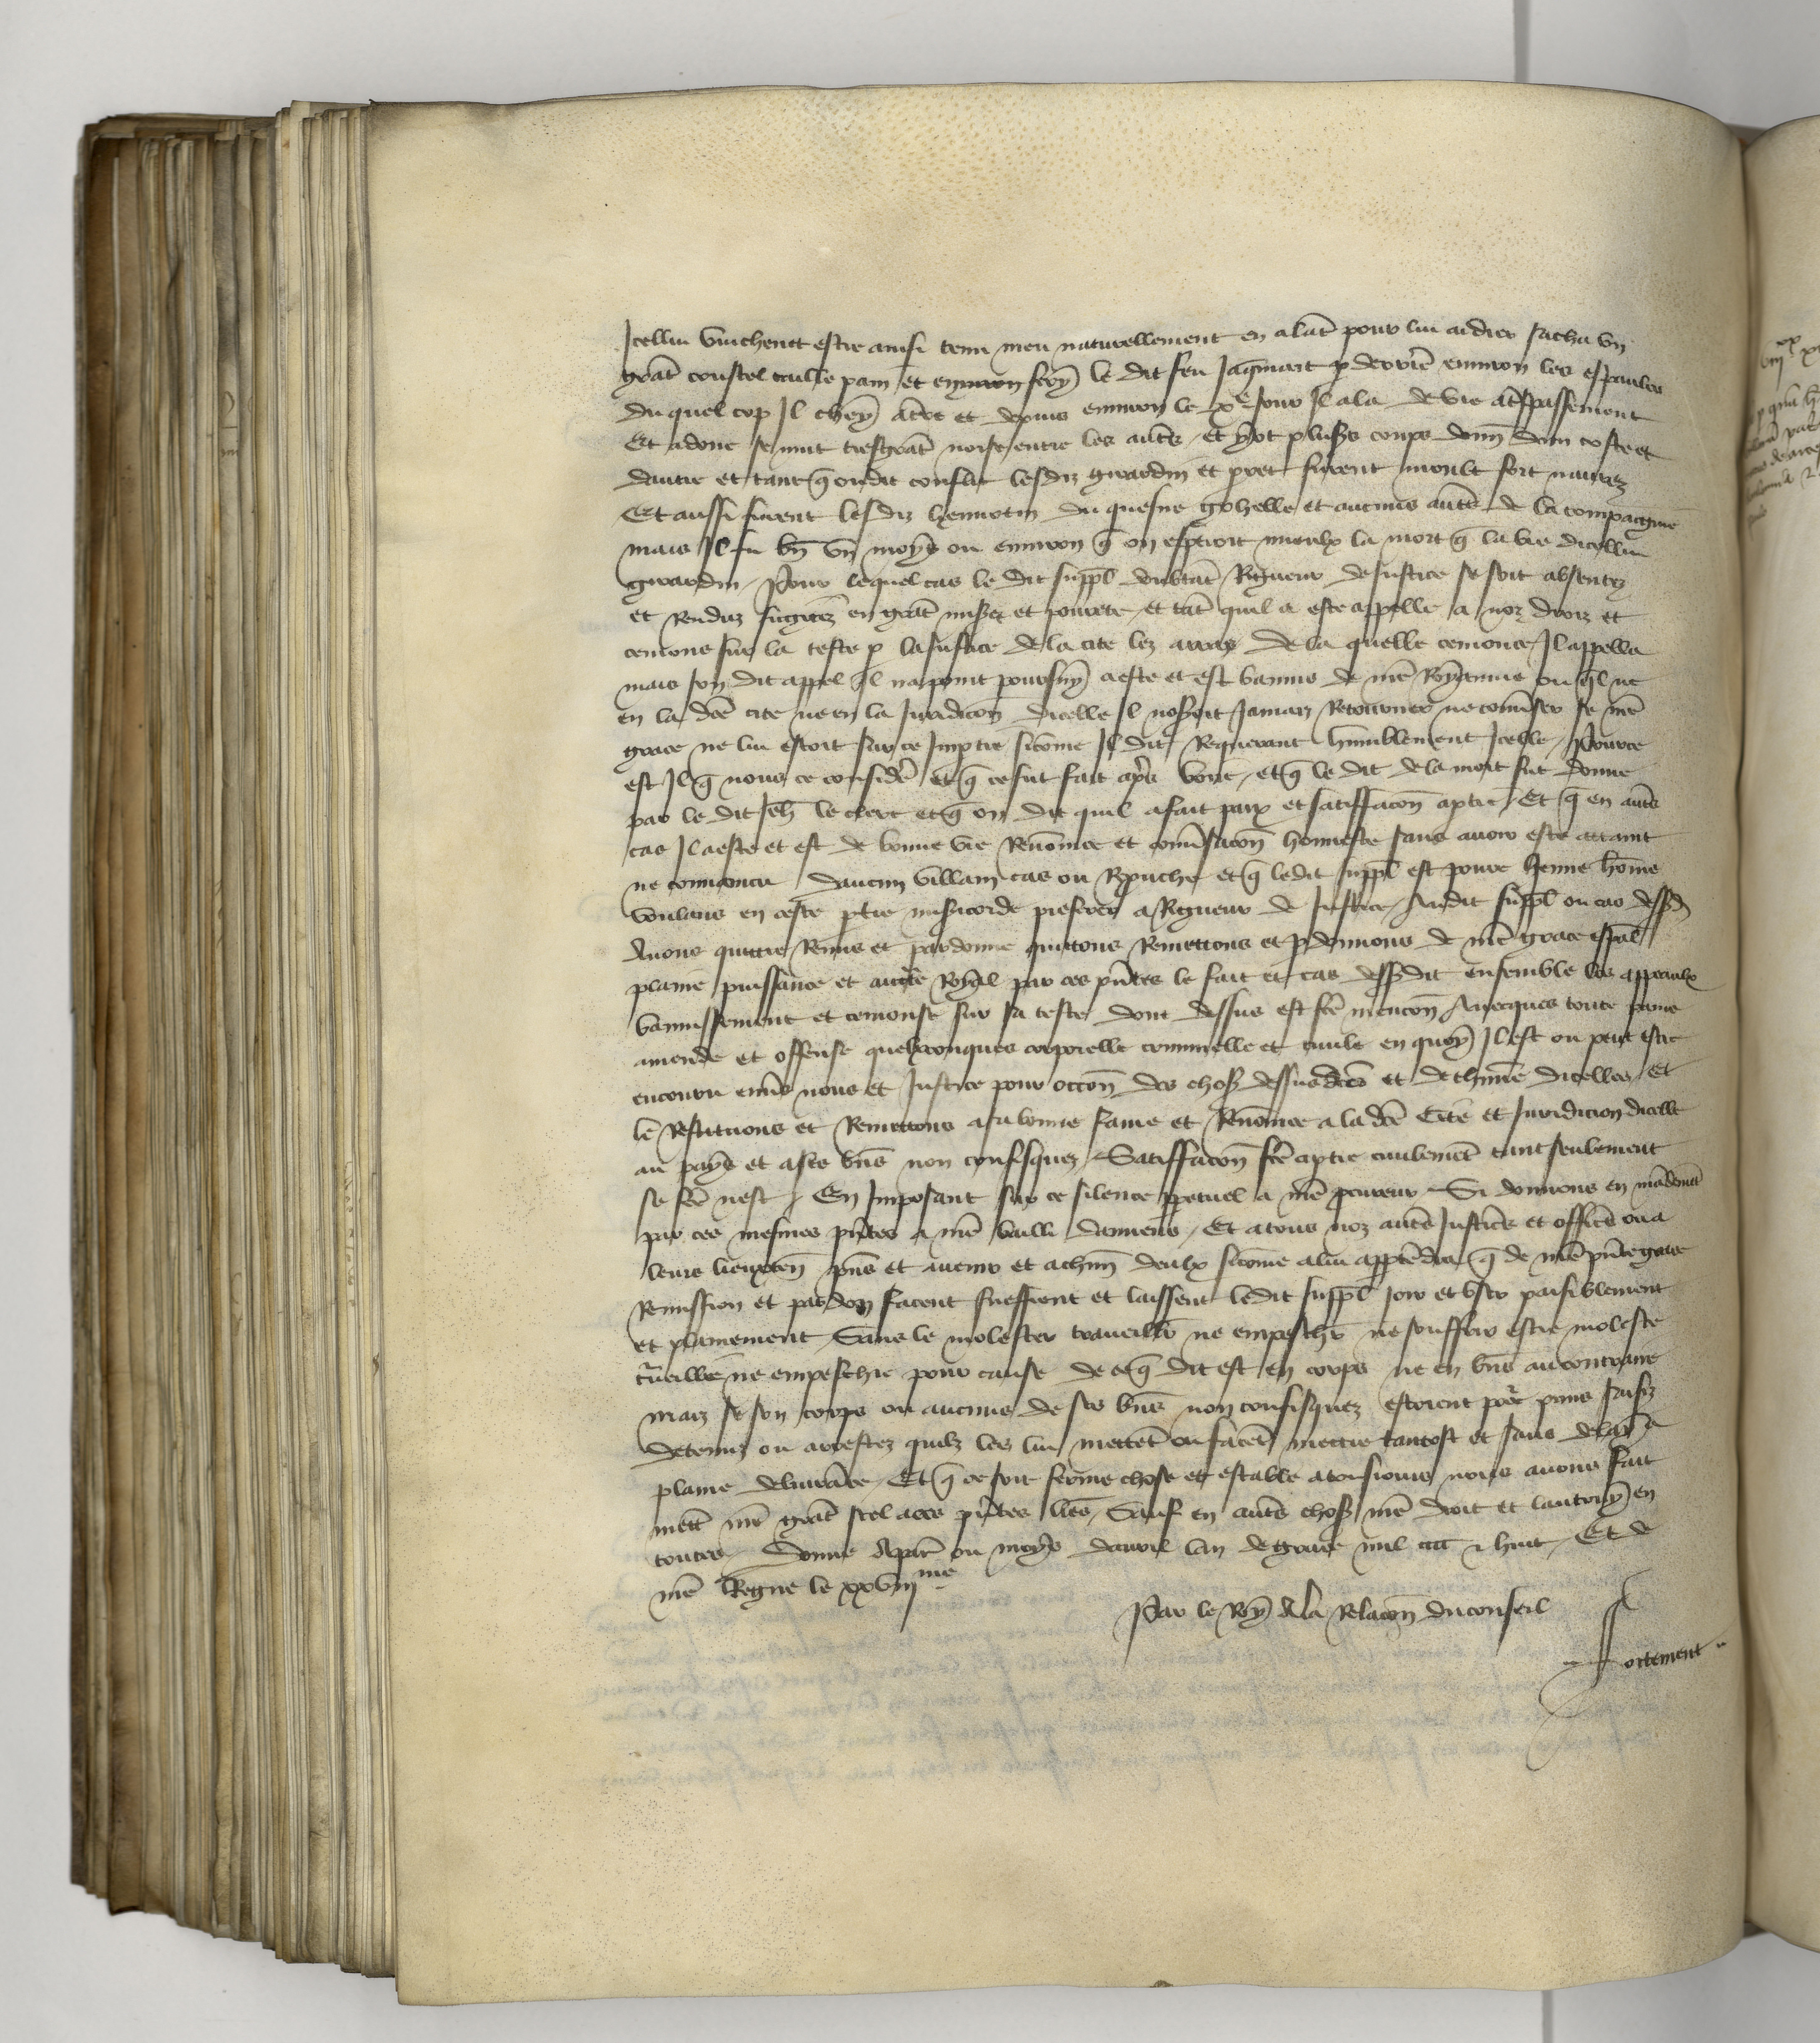 Icellui vinchenet estre ainsi tenu meu naturellement en alāt pour lui aidier sacha vn
grāt coustel taille pain et en fery le dit feu Jaq̄mart p derriē enuiron les espaules
du quel cop Il chey a tre et depuis enuiron le xe jour Il ala de vie a tspassement
Et adonc se mut tresgrāt noise entre les autˢ et y ot plusˢ coups donn̄ dun coste et
dautre et tant q̄ ou dit conflit lesdiz girardin et furent moult fort naurez
Et aussi furent lesdiz hennotin du quesne gohelle et aucuns autˢ de la compaignie
mais Il fu bn̄ vn moys ou enuiron q̄ on esperoit mieulx la mort q̄ la vie dicellui
girardin Pour lequel cas le dit suppl̄ doubtāt Rigueur de Justice se soit absentez
et Renduz fugitiz en grāt misˢe et pourete et tāt quil a este appelle a noz droiz et
cemons sur la teste p la Justice de la cite lez arraz de la quelle cemonce Il appella
mais son dit appel Il na point poursuy a este et est bannis de nrē Royaume ou q̄l ne
en la dcē cite ne en la Juridicōn dicelle Il noseroit Jamaiz Retourner ne conūser se nrē
grace ne lui estoit sur ce Imptie sicōme Il dit Requerant humblement Icelle Pource
est Il q̄ nous ce considē et q̄ ce fut fait apˢ boire et q̄ le dit de la mort fut donne
par le dit Jeh̄ le clerc et q̄ on dit quil a fait paix et satiffacōn a ptie Et q̄ en autˢ
cas Il a este et est de bonne vie Renōmee et conūsacōn honneste sans auoir este attaint
ne conuaincu daucun villain cas ou Rpuche et q̄ ledit suppl̄ est poure Jeune hōme
voulans en ceste ptie misˢicorde preferer a Rigueur de Justice Audit suppl̄ ou cas dessˢd
Auons quittie Remis et pardonne quittons Remettons et pdonnons de nrē grace esp̄al
plaine puissance et auctē Royal par ces pn̄tes le fait et cas dessˢdit ensemble les appeaulx
bannissement et cemonse sur sa teste dont dessus est fcē mencōn Auecques toute paine
amende et offense quelxconques corporelle criminelle et ciuile en quoy Il est ou peut estre
encouru enuˢ nous et Justice pour occōn des chosˢ dessusdcēs et dechune dicelles Et
lē Restituons et Remettons a sa bonne fame et Renōmee a la dcē Cite et Juridicion dicelle
au pays et a ses bn̄s non confisquez Satiffacōn fcē a ptie ciuilemēt tant seulement
se fcē nest En Imposant sur ce silence ppetuel a nrē pcureur Si donnons en mādemēt
par ces mesmes pn̄tes a nrē bailli damiens Et a tous noz autˢ Justicēs et officēs ou a
leurs lieuxten̄ pn̄s et auenir et a chun̄ deulx sicōme a lui apptēdra q̄ de nrē pn̄te grace
Remission et pardon facent sueffrent et laissent ledit suppl̄ joir et vser paisiblement
et plainement Sans le molester trauaillier ne empeschier ne souffrir estre moleste
tˢuaillie ne empeschie pour cause de ce q̄ dit est en corps ne en bn̄s au contraire
maiz se son corps ou aucuns de ses bn̄s non confisquez estoient pōr prins saisiz
detenuz ou arrestez quilz les lui mettēt ou facēt mettre tantost et sans delay a
plaine deliurāce Et q̄ ce soit ferme chose et estable a tousiours nous auons fait
mettˢ nrē grāt seel a ces pn̄tes lrēs Sauf en autˢ chosˢ nrē droit et lautruy en
toutes Donne A paris ou moys dauril lan de grace mil cccc & huit Et de
nrē Regne le xxviijme
Par le Roy A la Relacōn du conseil
ffortement